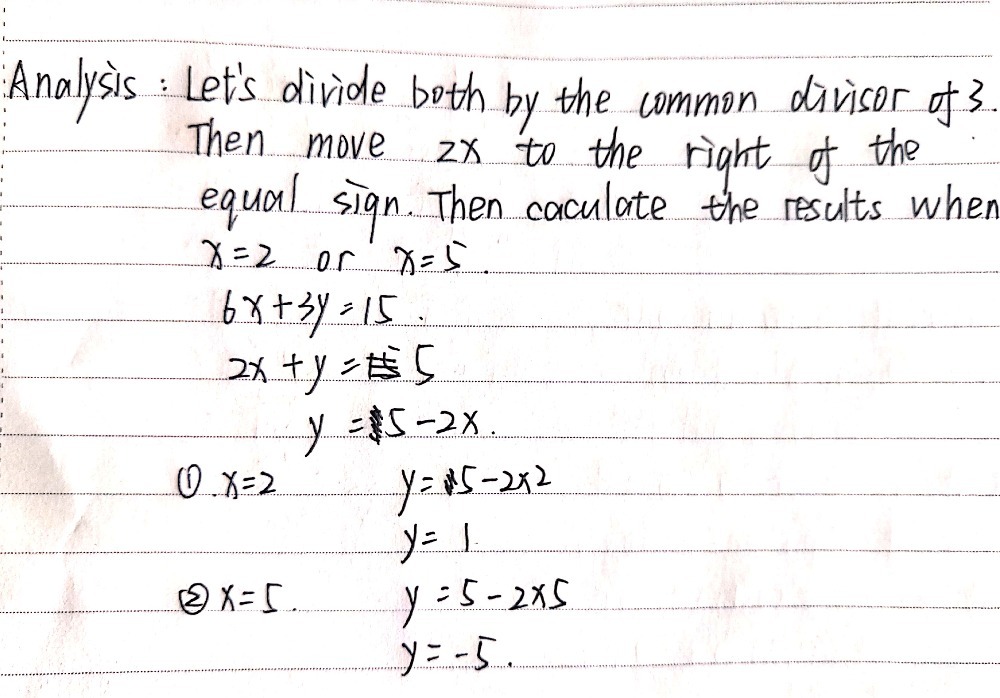 Analysis : Let's divide both by the common divisor of 3.
Then move 2x to the right of the
equal sign. Then caculate the results when
x=2 or x=5.
6x+3y=15.
2x+y=5
y=5-2x.
①.x=2 y=5-2×2
y=1
②x=5. y=5-2×5
y=-5.